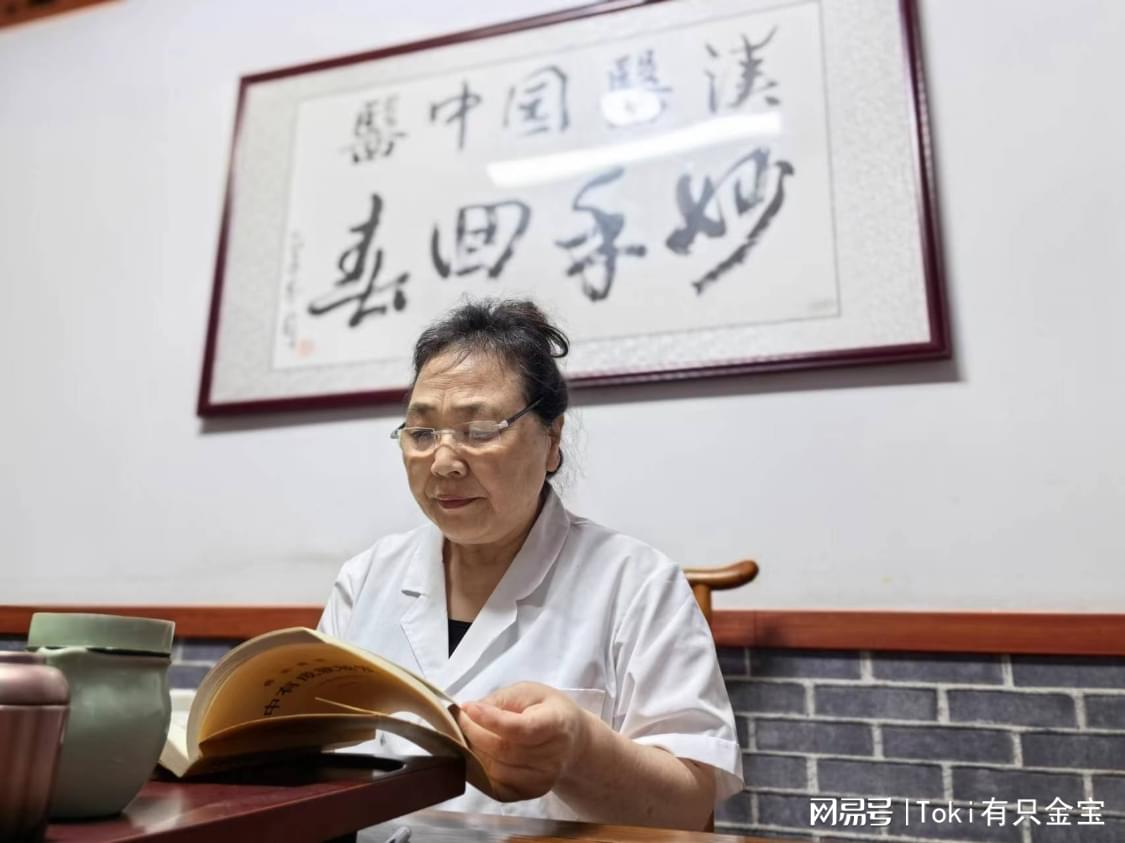 漢醫国中醫
妙手回春
网易号 | Toki有只金宝